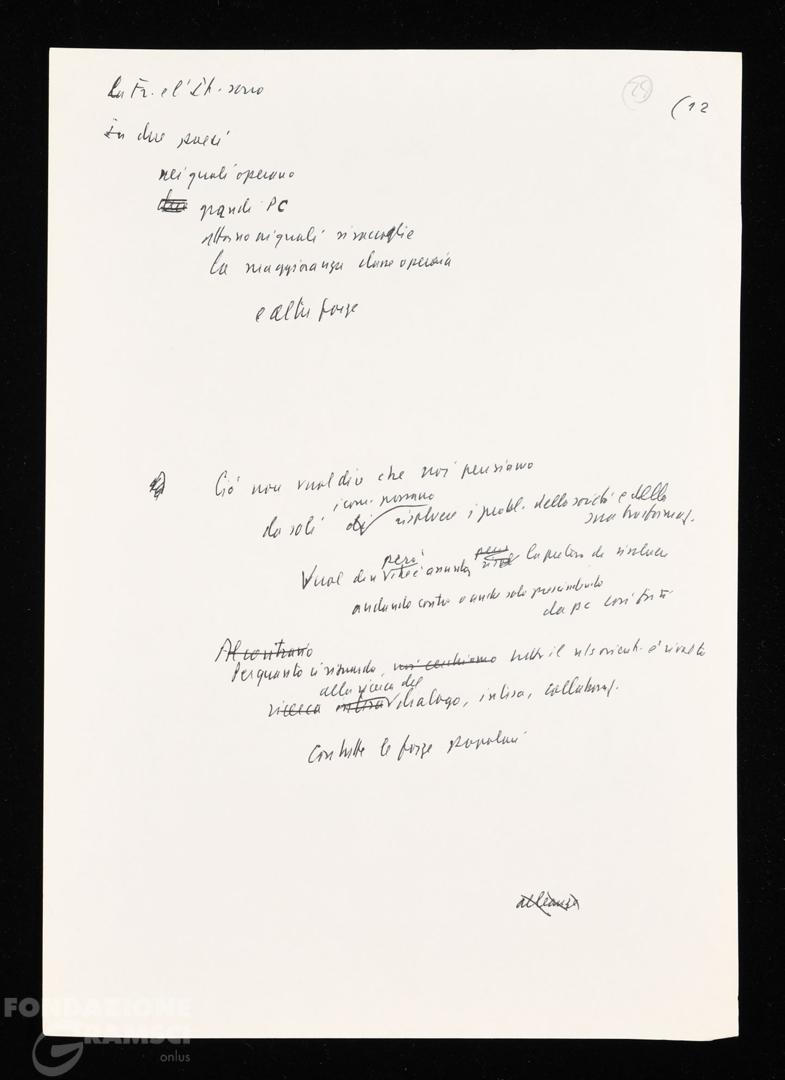 La Fr. e l'It. sono
25
(12
in due paesi
nei quali operano
due grandi PC
attorno ai quali si raccoglie
la maggioranza classe operaia
e altre forze
Ciò non vuol dire che noi pensiamo
i com. possano
da soli di risolvere i probl. della società e della
sua trasformaz.
però
Vuol dire che è assurda la pretesa di risolvere
andando contro o anche solo prescindendo
da pc così forti
Al contrario
Per quanto ci riguarda, noi cerchiamo tutto il ns orient. è rivolto
alla ricerca del
ricerca intesa dialogo, intesa, collaboraz.
con tutte le forze popolari
alleanza
FONDAZIONE
GRAMSCI
onlus